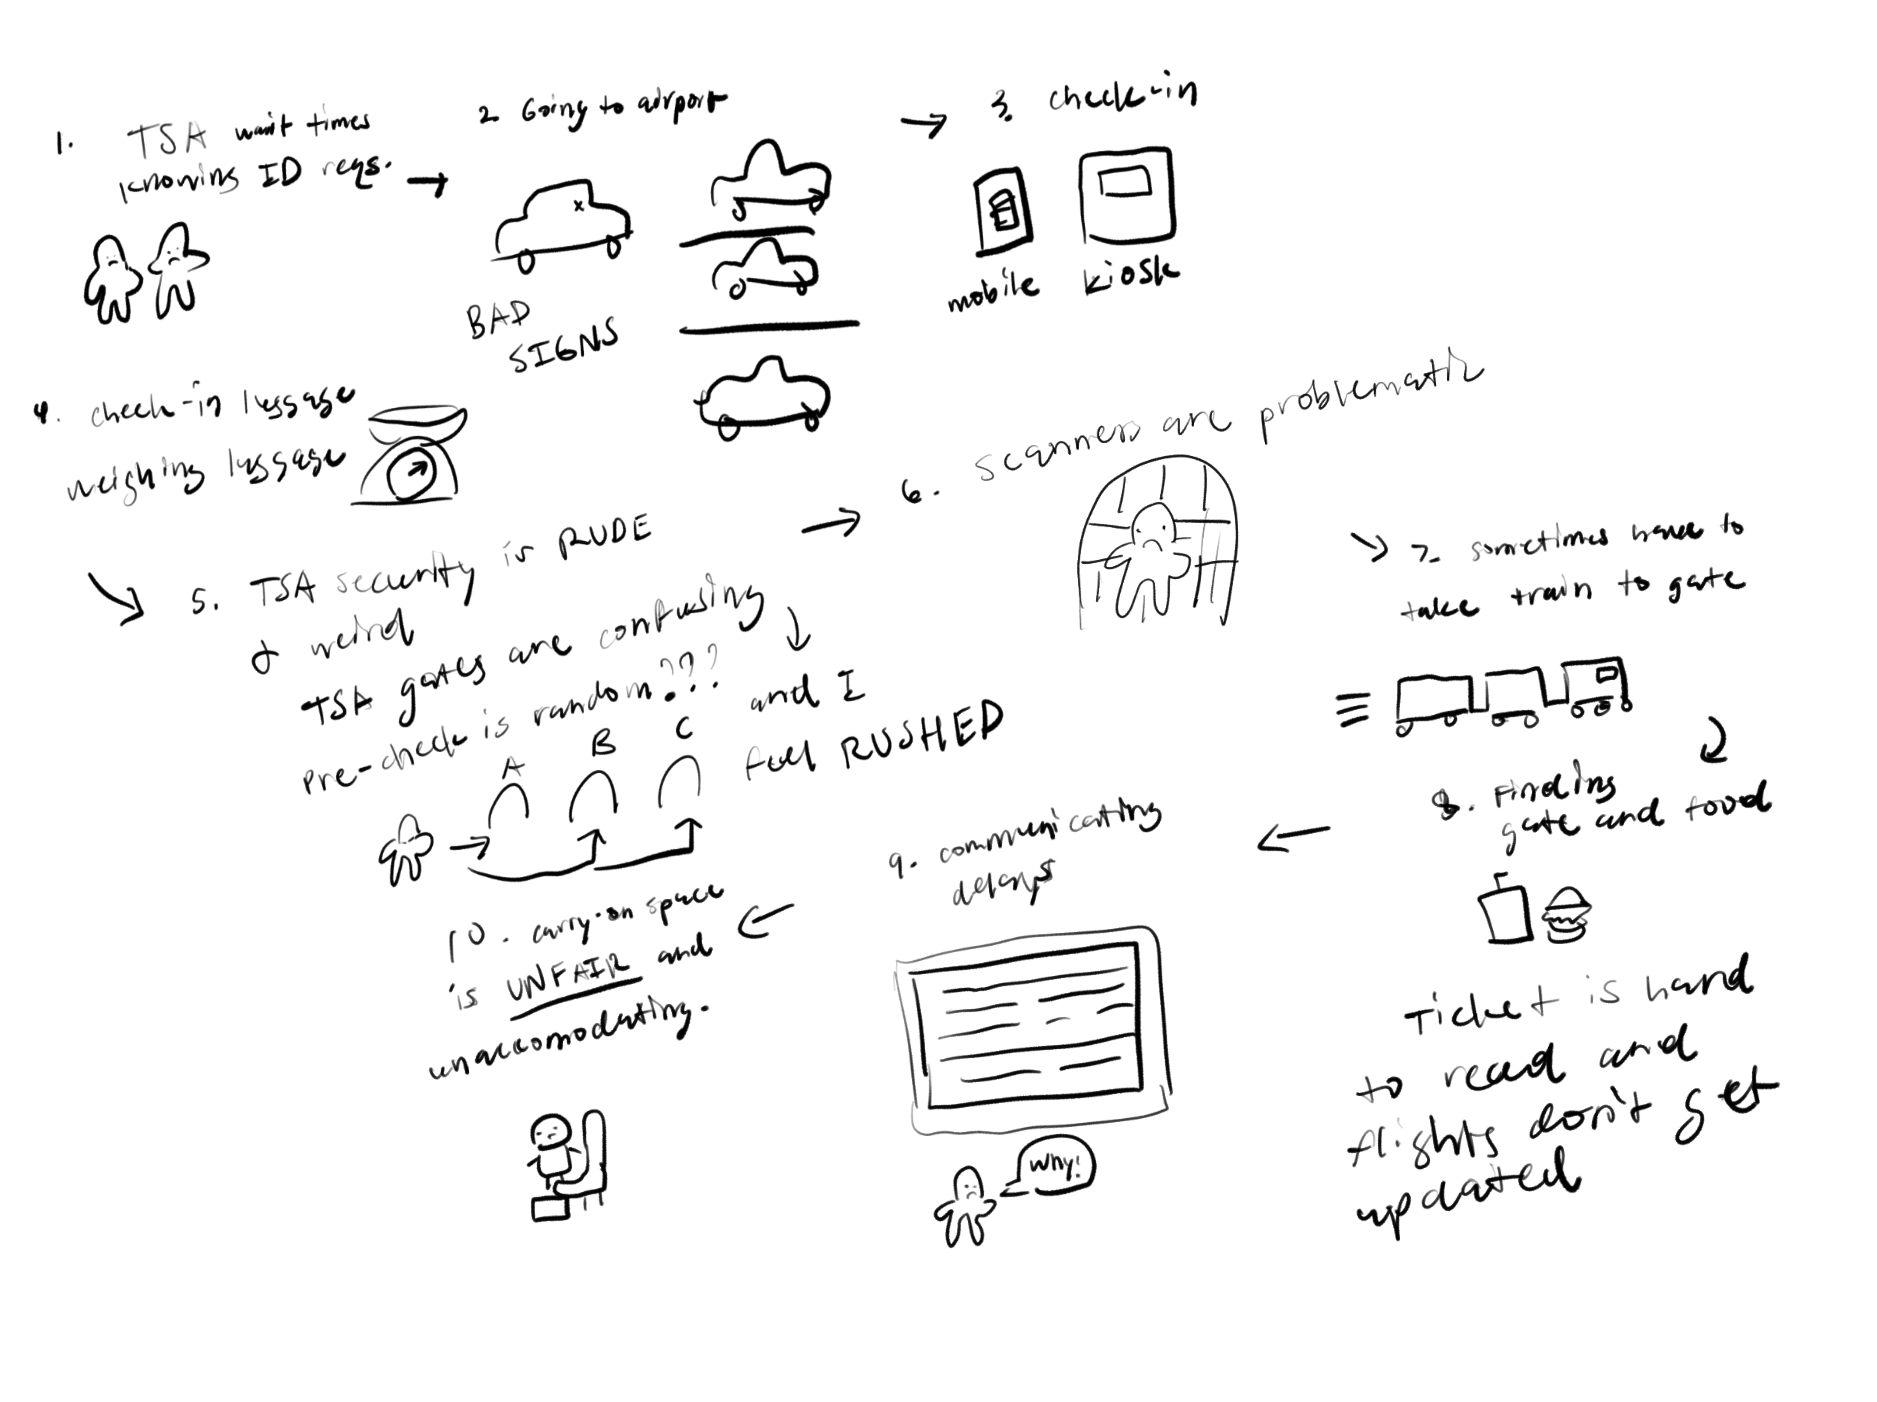 1. TSA wait times
knowing ID reqs.
2 Going to airport
BAD
SIGNS
3. check-in
mobile
kiosk
4. check-in luggage
weighing luggage
5. TSA security is RUDE
& weird
TSA gates are confusing
pre-check is random???
and I
feel RUSHED
A B C
6. scanners are problematic
7. sometimes have to
take train to gate
8. Finding
gate and food
Ticket is hard
to read and
flights don't get
updated
9. communicating
delays
Why!
10. carry-on space
is UNFAIR and
unaccomodating.